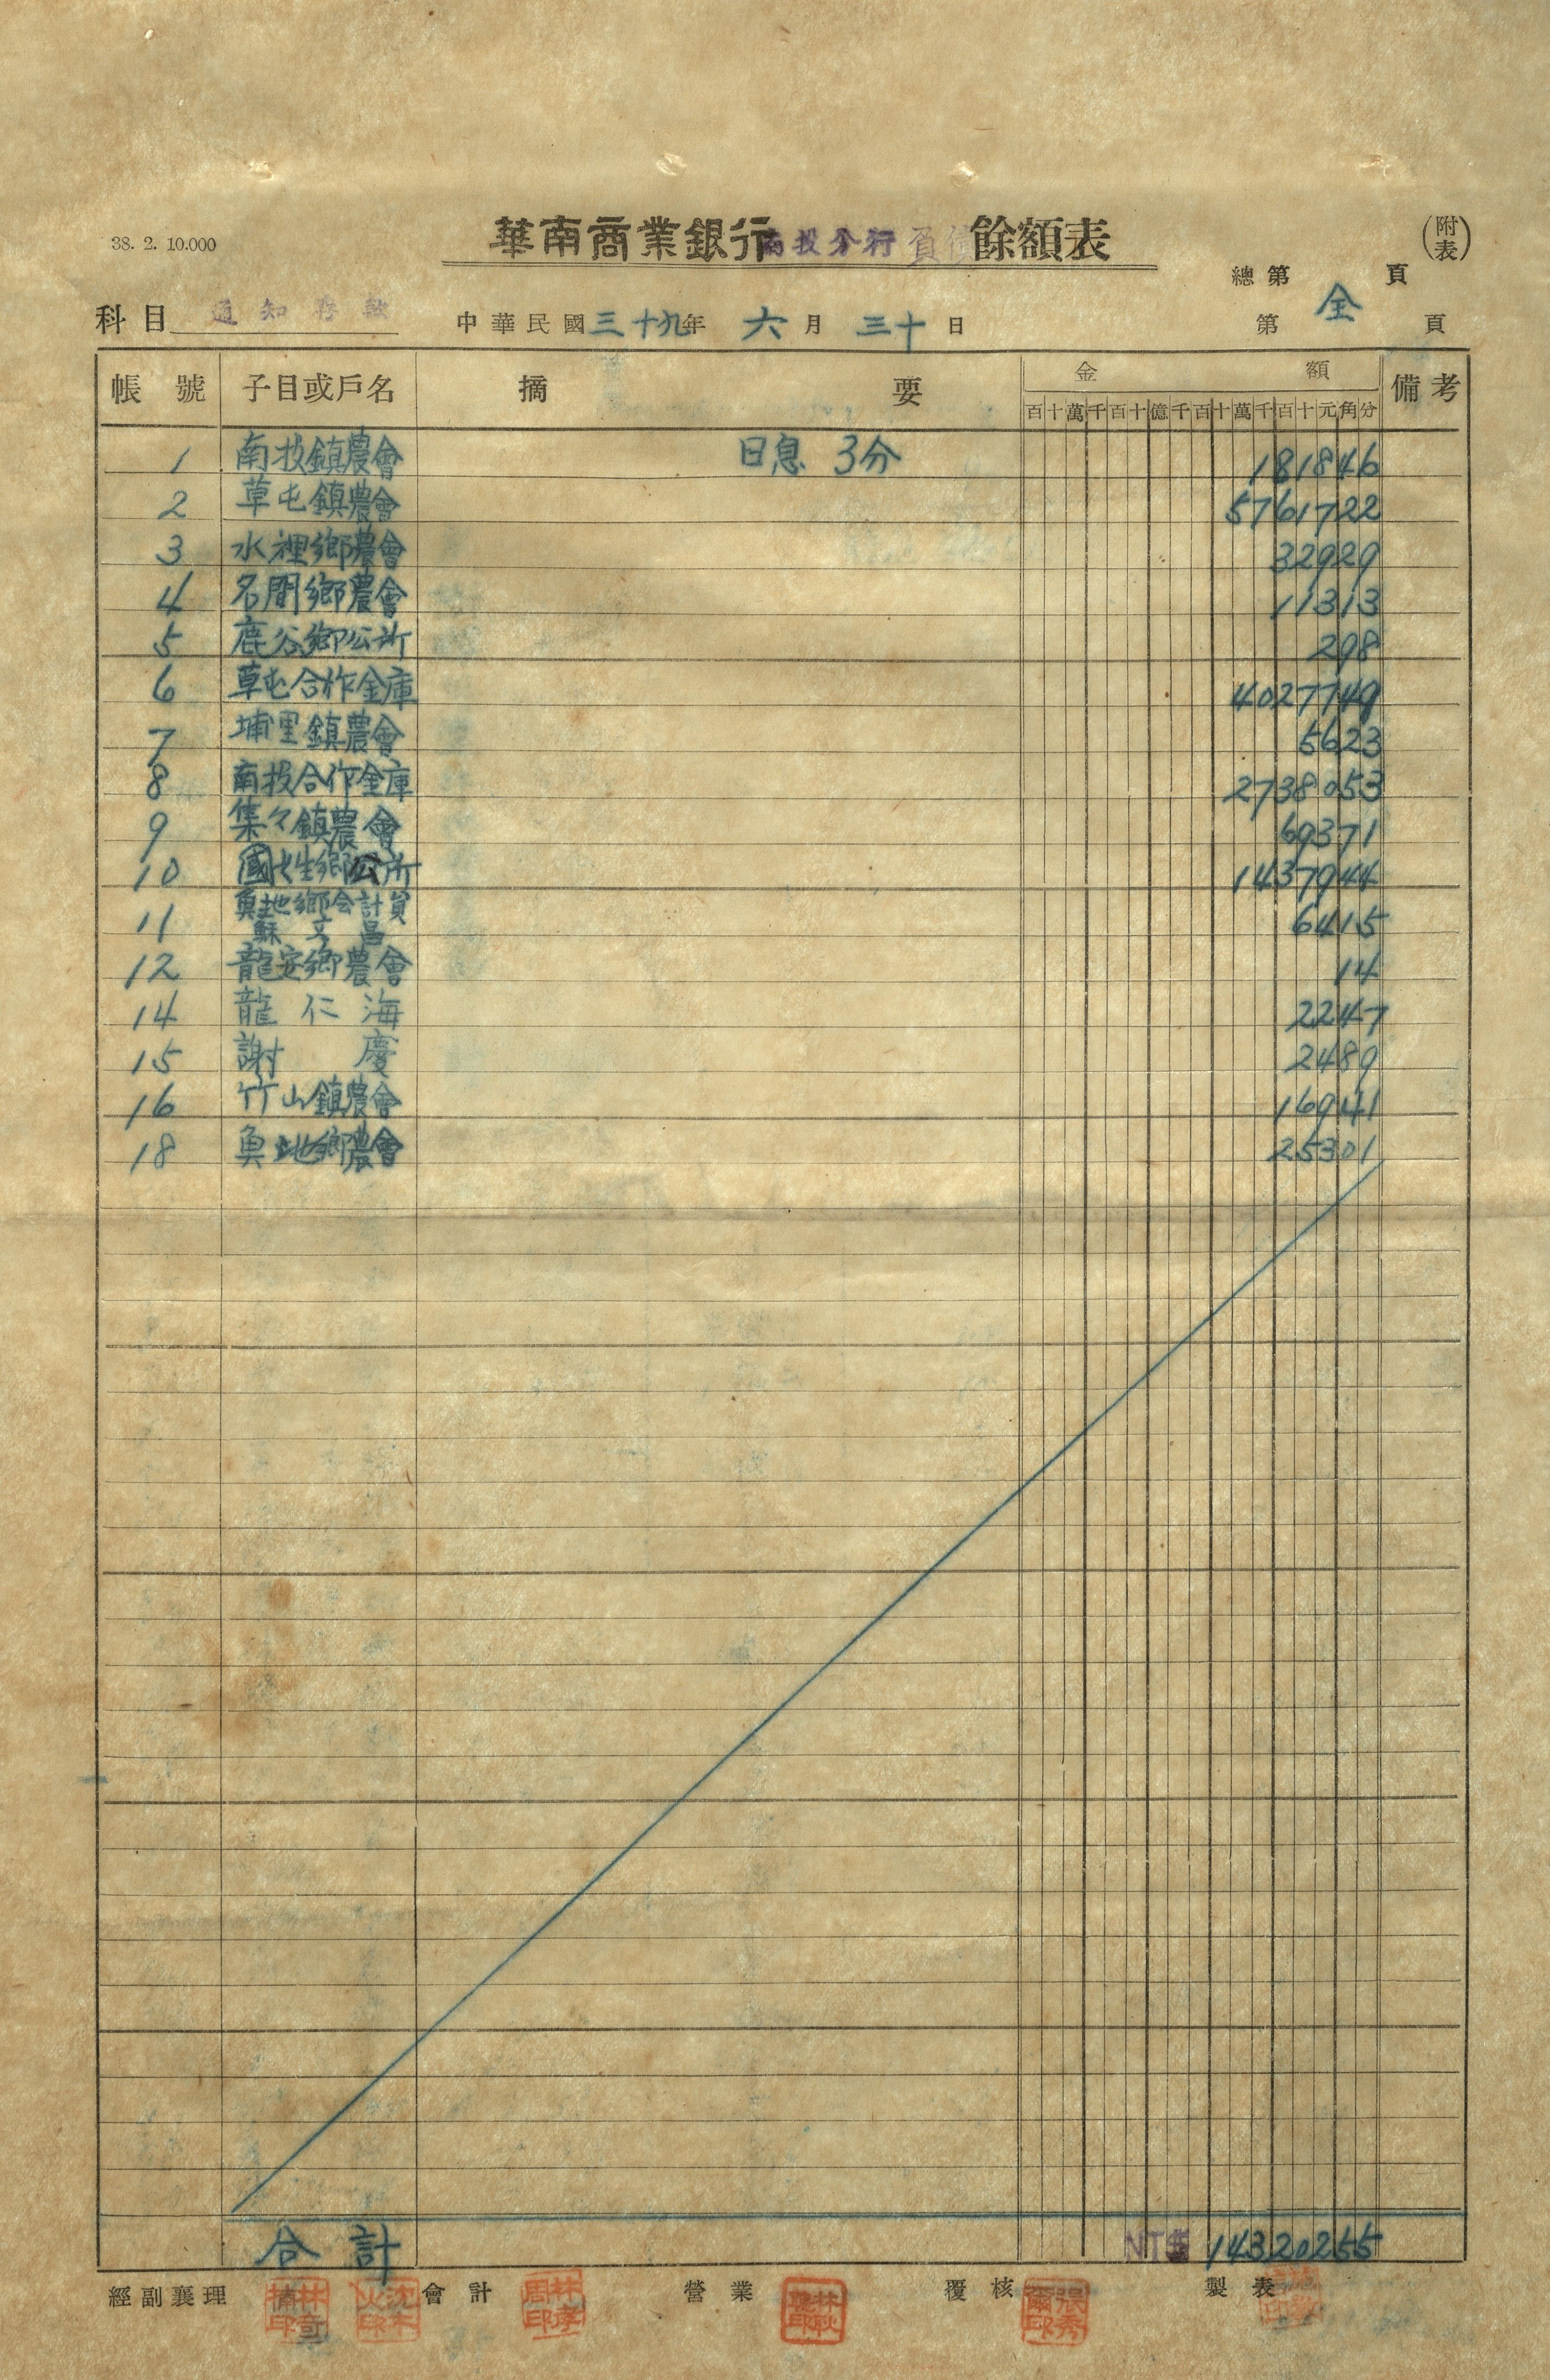 38. 2. 10.000
華南商業銀行南投分行負債餘額表
(附表)
總第 頁
科目 通知存款 中華民國三十九年 六月 三十日 第 全 頁
帳號 子目或戶名 摘要 金額 備考
百十萬千百十億千百十萬千百十元角分
1 南投鎮農會 日息 3分 181846
2 草屯鎮農會 5761722
3 水裡鄉農會 32929
4 名間鄉農會 11313
5 鹿谷鄉公所 298
6 草屯合作金庫 4027749
7 埔里鎮農會 5623
8 南投合作金庫 2738053
9 集々鎮農會 69371
10 國姓鄉公所 1437944
11 魚池鄉会計員 蘇文昌 6415
12 龍安鄉農會 14
14 龍仁海 2247
15 謝慶 2489
16 竹山鎮農會 16941
18 魚池鄉農會 25301
合計 NT$ 14320255
經副襄理 會計 營業 覆核 製表